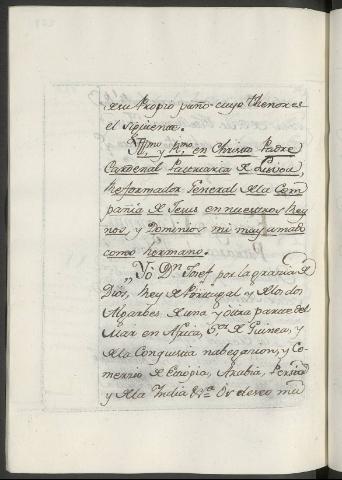 de su Propio puño cuyo Thenor es
el siguiente.
Yll,,mo y R,,mo en Christo Padre
Cardenal Patriarca de Lisboa,
Reformador General de la Com
pañia de Jesus en nuestros Rey
nos, y Dominios mi muy amado
como hermano.
,,Yo D,,n Josef por la grazia de
Dios, Rey de Portugal y de los dos
Algarbes de una y otra parte del
Mar en Africa, S,,ra de Guinea, y
de la Conquista nabegazion, y Co-
merzio de Etiopia, Arabia, Persia
y de la India &,,a Os deseo mu